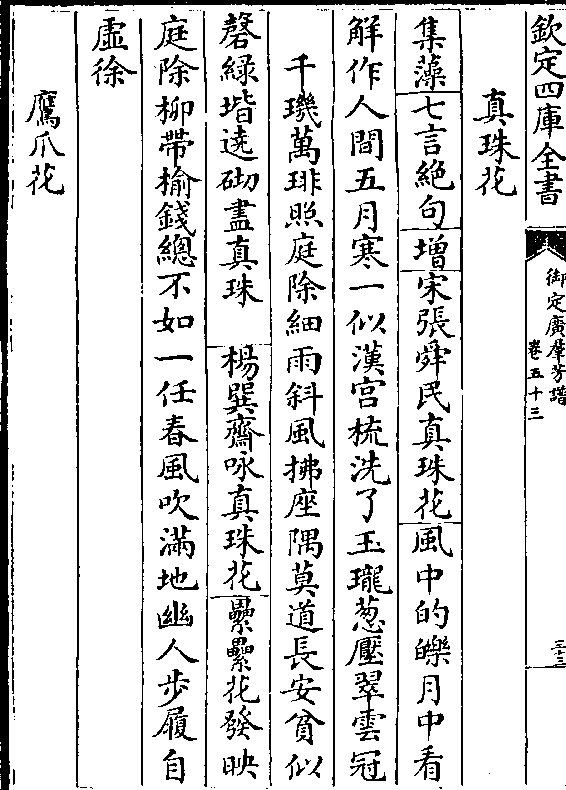 欽定四庫全書
御定廣羣芳譜
卷五十三
三十三
真珠花
集藻七言絶句增宋張舜民真珠花風中的皪月中看
解作人間五月寒一似漢宫梳洗了玉瓏葱壓翠雲冠
千璣萬琲照庭除細雨斜風拂座隅莫道長安貧似
磬綠堦遶砌盡真珠 楊巽齋咏真珠花纍纍花發映
庭除柳帶榆錢總不如一任春風吹滿地幽人步屧自
虚徐
鷹爪花